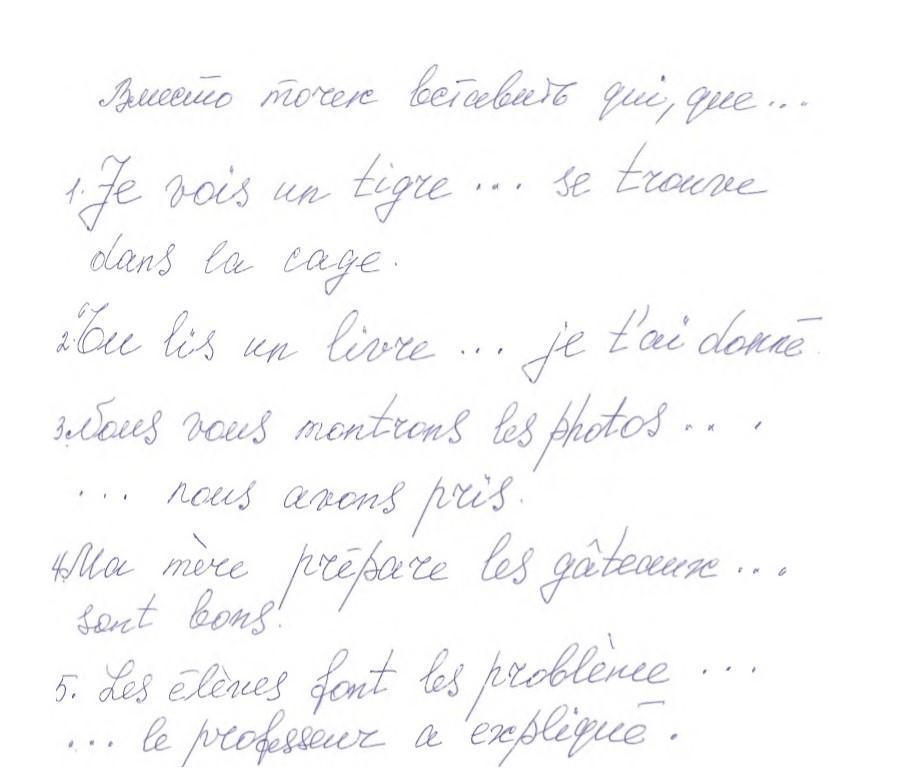 Вместо точек вставить qui, que...
1. Je vois un tigre ... se trouve
dans la cage.
2. Tu lis un livre ... je t'ai donné
3. Nous vous montrons les photos ...
... nous avons pris.
4. Ma mère prépare les gâteaux ...
sont bons.
5. Les élèves font les problème ...
... le professeur a expliqué.